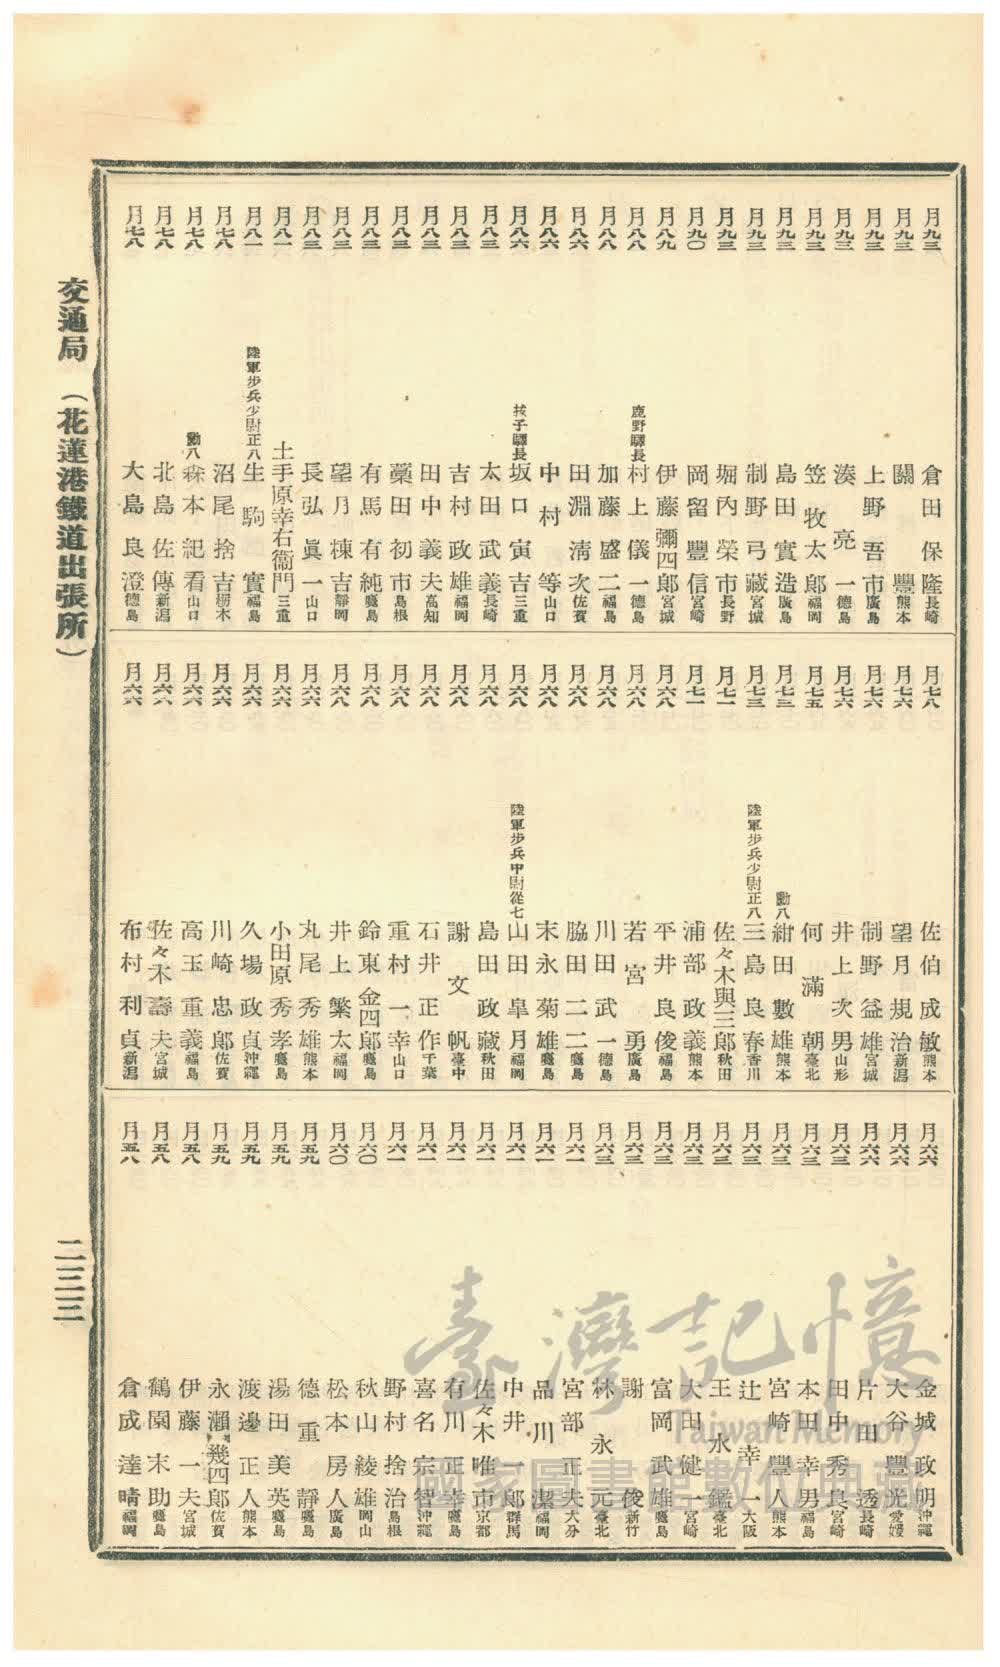 月九三 倉田保隆 長崎
月九三 關豐 熊本
月九三 上野吾市 廣島
月九三 湊亮一 德島
月九三 笠牧太郎 福岡
月九三 島田實造 廣島
月九三 制野弓藏 宮城
月九三 堀內榮市 長野
月九〇 岡留豐信 宮崎
月八九 伊藤彌四郎 宮城
月八八 鹿野驛長 村上儀一 德島
月八八 加藤盛二 福島
月八六 田淵清次 佐賀
月八六 中村等 山口
月八六 拔子驛長 坂口寅吉 三重
月八三 太田武義 長崎
月八三 吉村政雄 福岡
月八三 田中義夫 高知
月八三 藁田初市 島根
月八三 有馬有純 鹿島
月八三 望月棟吉 靜岡
月八三 長弘眞一 山口
月八一 土手原幸右衞門 三重
月八一 陸軍步兵少尉正八 生駒實 福島
月七八 沼尾捨吉 栃木
月七八 勳八 森本紀看 山口
月七八 北島佐傳 新潟
月七八 大島良澄 德島
月七八 佐伯成敏 熊本
月七六 望月規治 新潟
月七六 制野益雄 宮城
月七六 井上次男 山形
月七五 何滿朝 臺北
月七三 勳八 紺田數雄 熊本
月七三 陸軍步兵少尉正八 三島良春 香川
月七一 佐々木與三郎 秋田
月七一 浦部政義 熊本
月六八 平井良俊 福島
月六八 若宮勇 廣島
月六八 川田武一 德島
月六八 脇田二二 鹿島
月六八 末永菊雄 鹿島
月六八 陸軍步兵中尉從七 山田皐月 福岡
月六八 島田政藏 秋田
月六八 謝文帆 臺中
月六八 石井正作 千葉
月六八 重村一幸 山口
月六八 鈴東金四郎 鹿島
月六八 井上繁太 福岡
月六六 丸尾秀雄 熊本
月六六 小田原秀孝 鹿島
月六六 久場政貞 沖繩
月六六 川崎忠郎 佐賀
月六六 高玉重義 福島
月六六 佐々木壽夫 宮城
月六六 布村利貞 新潟
月六六 金城政明 沖繩
月六六 大谷豐光 愛媛
月六六 片田透 長崎
月六三 田中秀良 宮崎
月六三 本田幸男 福島
月六三 宮崎豐人 熊本
月六三 辻幸一 大阪
月六三 王水鑑 臺北
月六三 大田健一 宮崎
月六三 富岡武雄 鹿島
月六三 謝俊 新竹
月六三 林永元 臺北
月六一 宮部正夫 大分
月六一 品川潔 福岡
月六一 中井一郎 群馬
月六一 佐々木唯市 京都
月六一 有川正幸 鹿島
月六一 喜名宗智 沖繩
月六一 野村捨治 島根
月六〇 秋山綾雄 岡山
月六〇 松本房人 廣島
月五九 德重靜 鹿島
月五九 湯田美英 鹿島
月五九 渡邊正人 熊本
月五九 永瀨幾四郎 佐賀
月五八 伊藤一夫 宮城
月五八 鶴園末助 鹿島
月五八 倉成達晴 福岡
交通局（花蓮港鐵道出張所）
二三三
臺灣記憶
Taiwan Memory
國家圖書館數位典藏